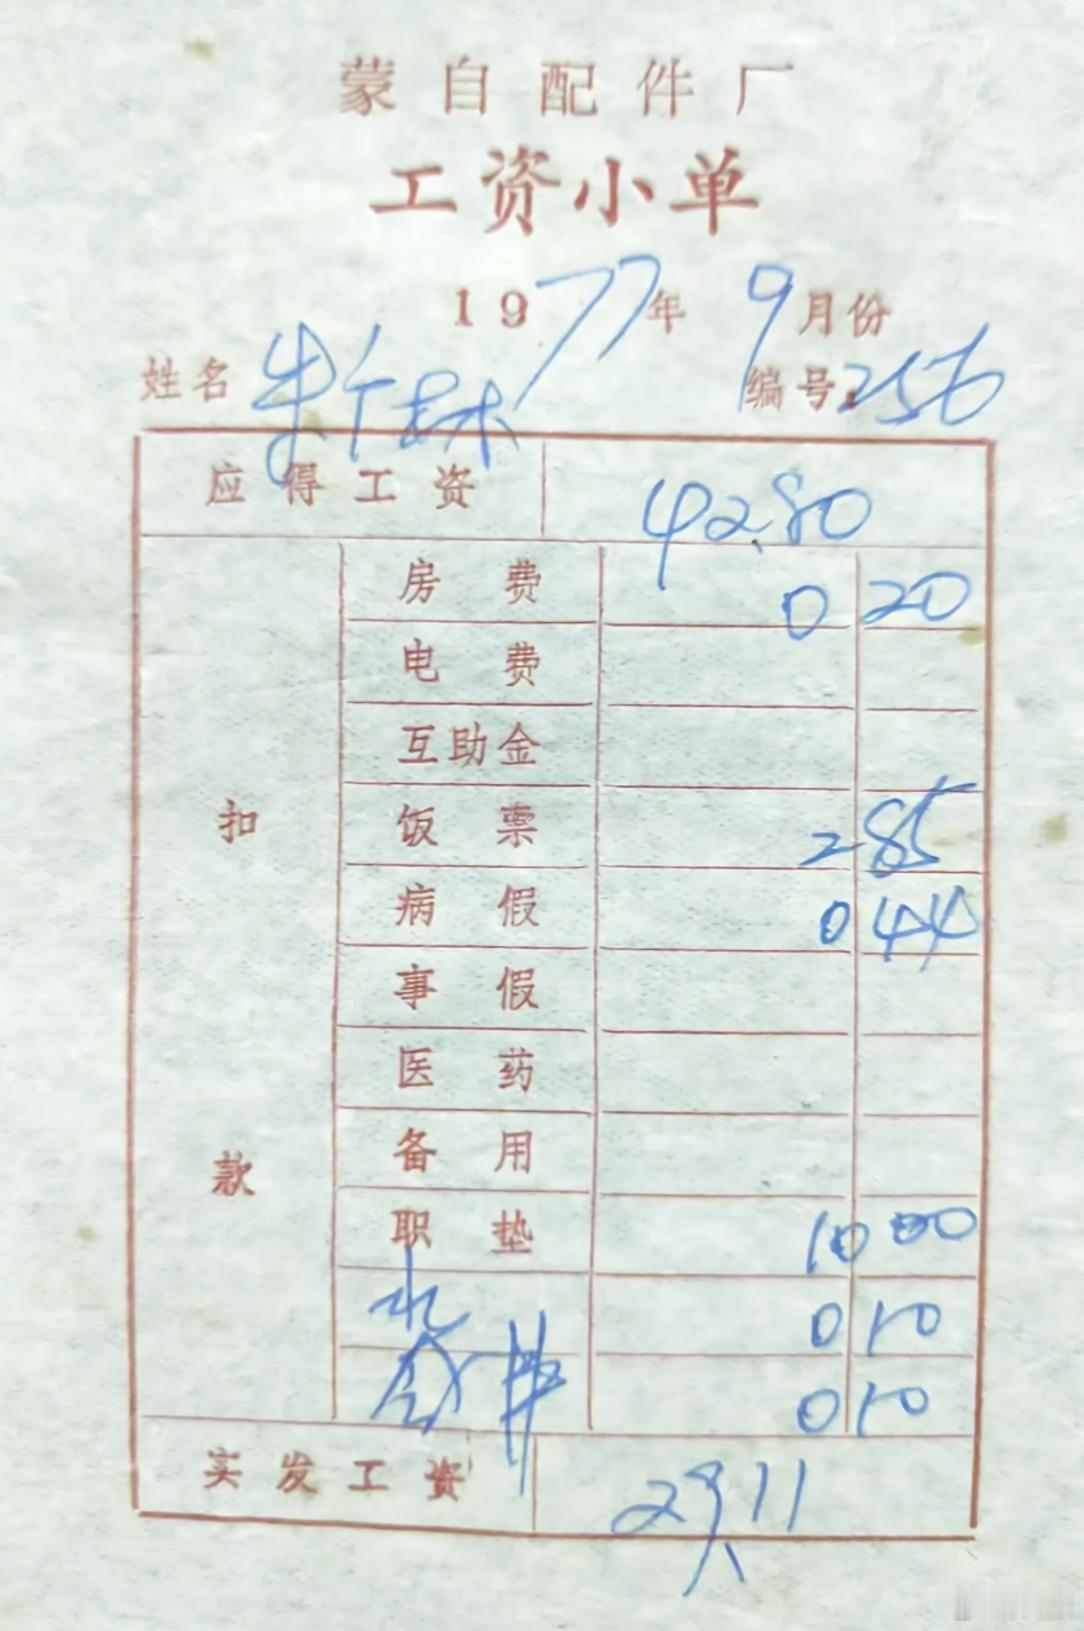 蒙自配件厂
工资小单
1977年 9月份
姓名 牛 编号 256
应得工资 42.80
扣款
房费 0 20
电费
互助金
饭票 2 85
病假 0 44
事假
医药
备用
职垫 10 00
水 0 10
会费 0 10
实发工资 29.11